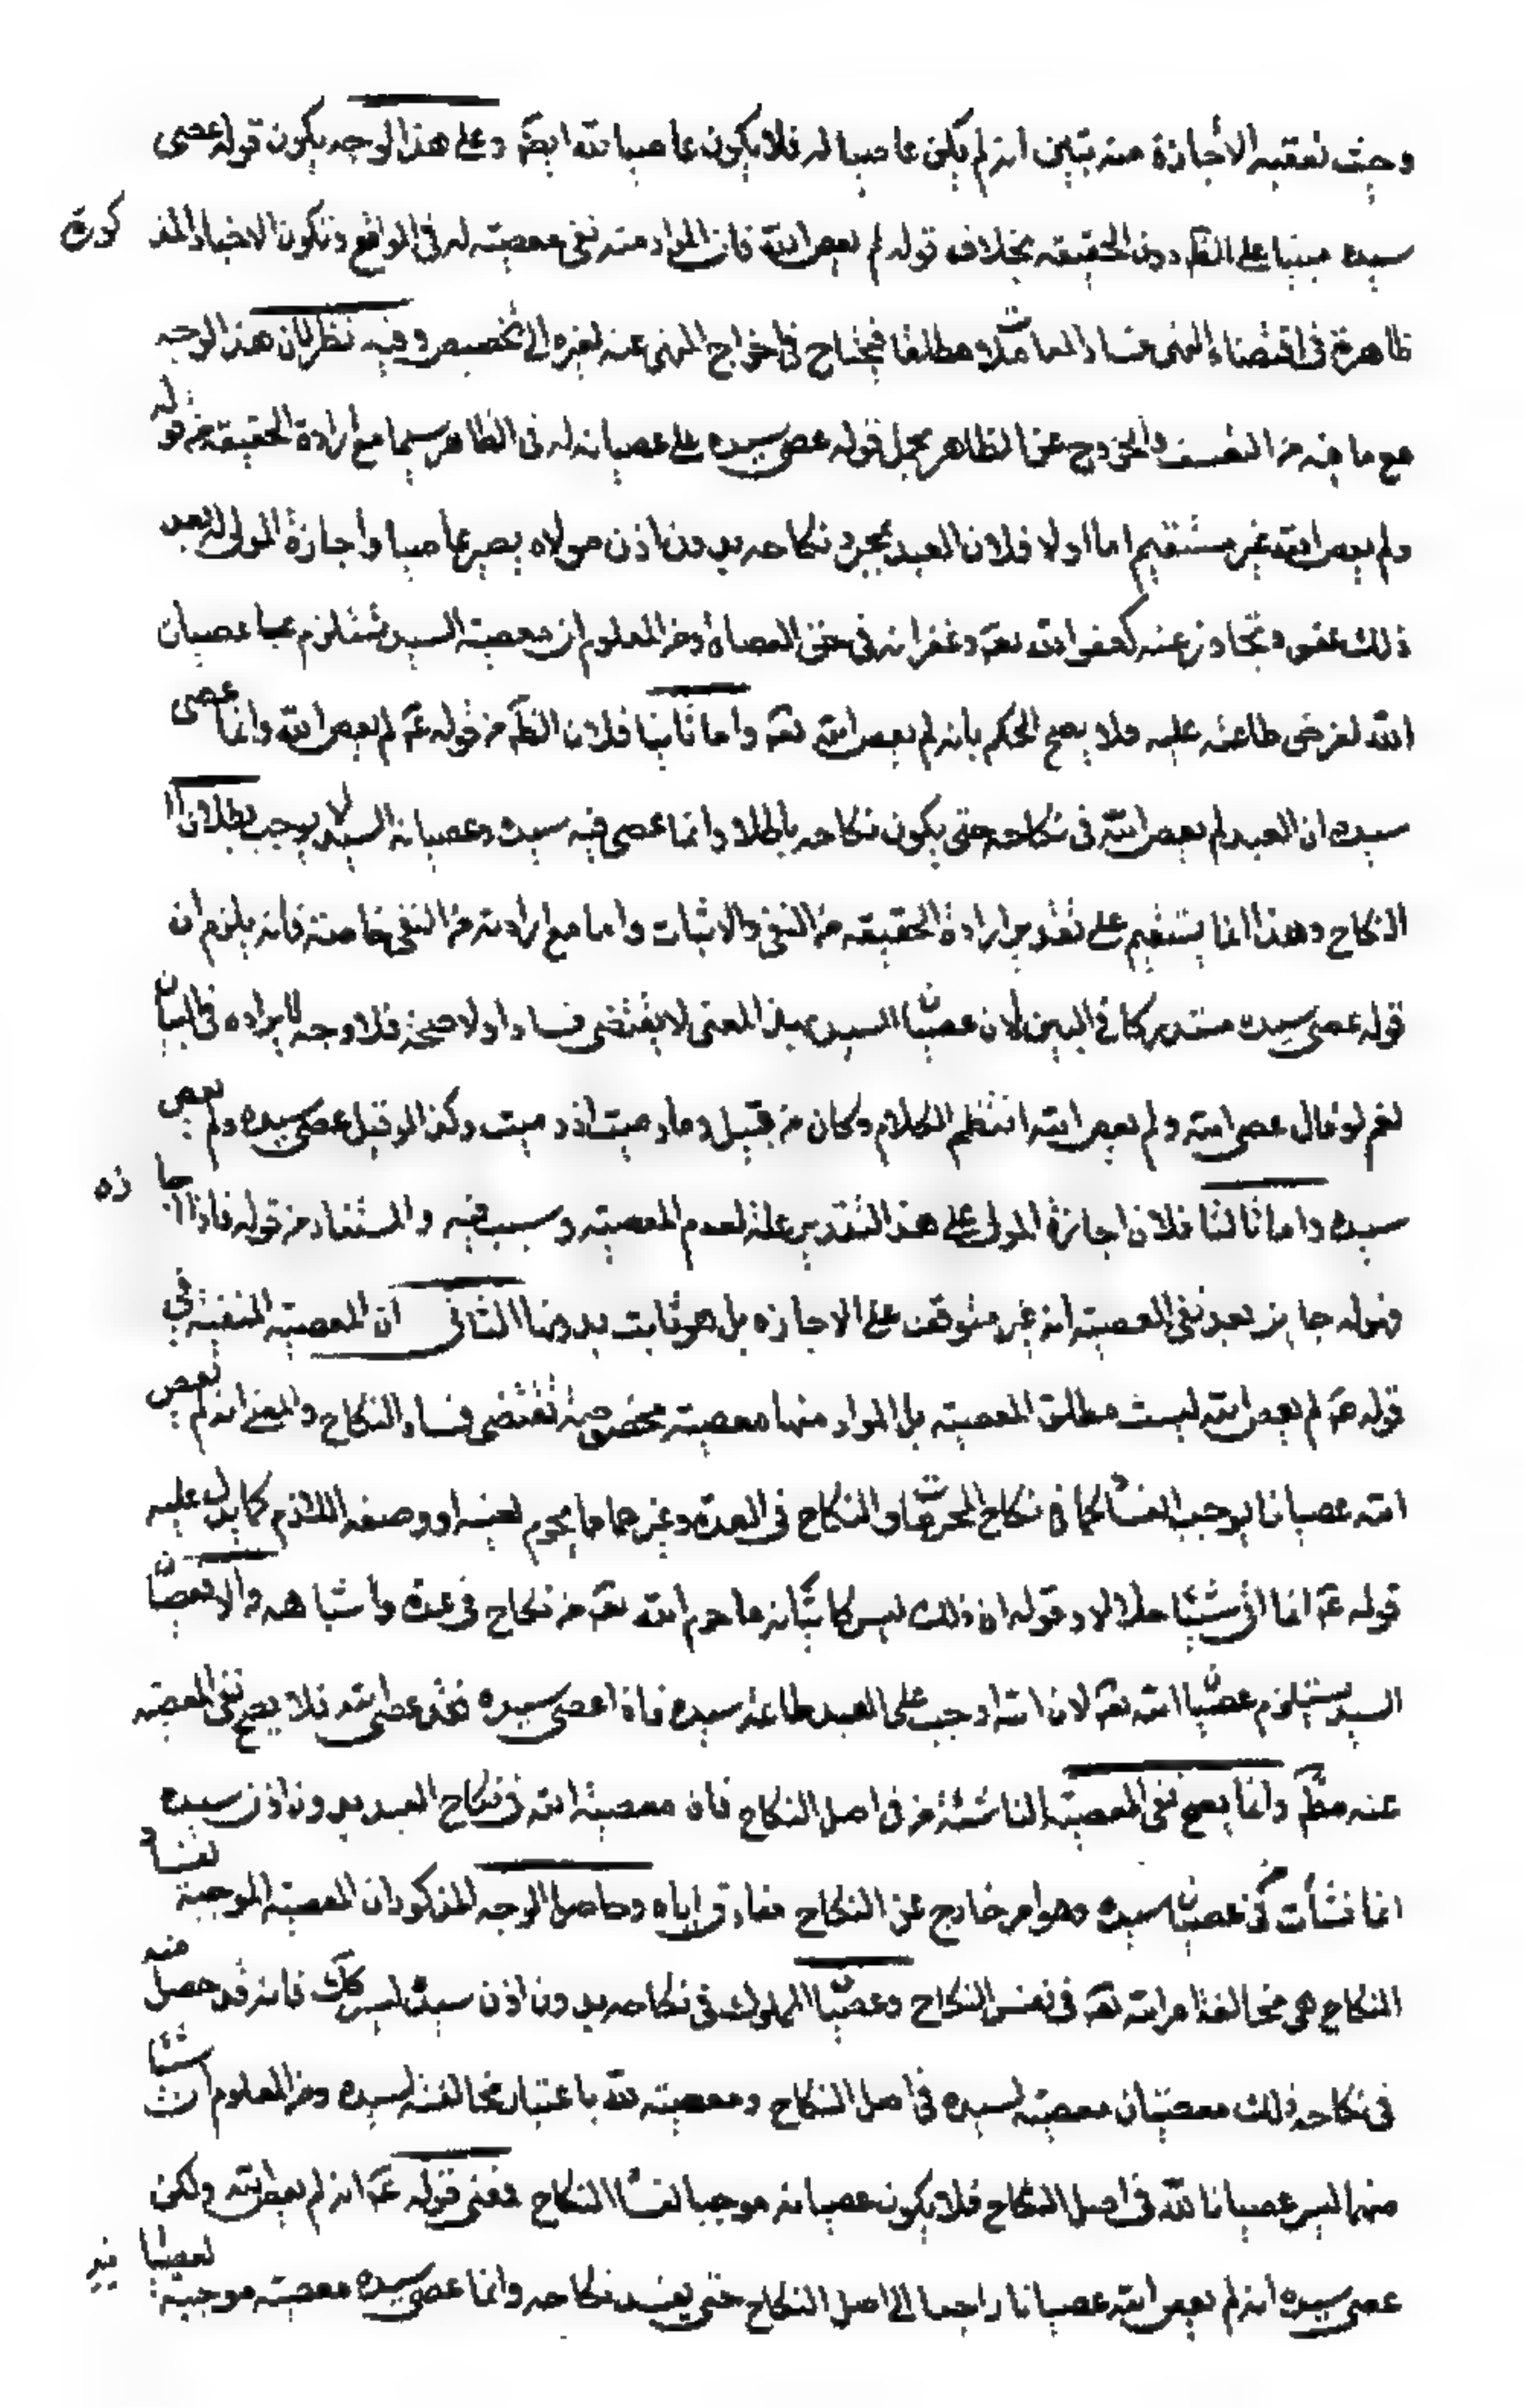 وحيث تعقبه الأجازة منه تبين انه لم يكن عاصيا له فلا يكون عاصيا لله ايضّ وعلى هذا الوجه يكون قوله عصى
سيده مبنيا على الظّ دون الحقيقه بخلاف قوله لم يعص الله فان المراد منه نفى معصيته له فى الواقع وتكون الاخبار المذ كورة
ظاهرة فى اقتضاء النهى فساد المعاملات مطلقا فيحتاج فى اخراج المنهى عنه لغيره الى تخصيص وفيه نظر لان هذا الوجه
مع ما فيه من التعسف والخروج عن الظاهر بحمل قوله عصى سيده على عصيانه له فى الظاهر سيما مع ارادة الحقيقة من قوله
ولم يعص الله غير مستقيم اما اولا فلان العبد بمجرد نكاحه بدون اذن مولاه يصير عاصيا واجازة المولى له بعد
ذلك عفو وتجاوز عنه كعفو الله تعّ وغفرانه فى حق العصاة ومن المعلوم ان معصية السيد تستلزم عصيان
الله لفرض طاعته عليه فلا يصح الحكم بانه لم يعص الله تعّ واما ثانيا فلان الظّ من قوله عّ لم يعص الله وانما عصى
سيده ان العبد لم يعص الله فى نكاحه حتى يكون نكاحه باطلا وانما عصى فيه سيده وعصيانه السيد لا يوجب بطلان
النكاح وهذا انما يستقيم على تقدير ارادة الحقيقه من النفى والاثبات واما مع ارادته من النفى خاصة فانه يلزم ان
قوله عصى سيده مستدركا فى البين لان عصيان السيد بهذا المعنى لا يقتضى فسادا ولا صحة فلا وجه لايراده فى البيان
نعم لو قال عصى الله ولم يعص الله انتظم الكلام وكان من قبيل وما رميت اذ رميت وكذا لو قيل عصى سيده ولم يعص
سيده واما ثالثا فلان اجازة المولى على هذا التقدير علة لعدم المعصية وسبب فيه والمستفاد من قوله فاذا اجازه
وقوله جايز بعد نفى المعصية انه غير متوقف على الاجازه بل هو ثابت بدونها الثانى ان المعصية المنفية فى
قوله عّ لم يعص الله ليست مطلق المعصيه بل المراد منها معصية مخصوصة تقتضى فساد النكاح والمعنى انه لم يعص
الله عصيانا يوجب الفساد كما فى نكاح المحرمات والنكاح فى العدة وغيرهما مما يحرم لعينه او وصفه اللازم كما يدل عليه
قوله عّ انما اتى شيئا حلالا وقوله ان ذلك ليس كاتيانه ما حرم الله تعّ من نكاح فى عدة واشباهه والا فعصيان
السيد يستلزم عصيان الله تعّ لان الله اوجب على العبد طاعة سيده فاذا عصى سيده فقد عصى الله فلا يصح نفى المعصية
عنه مطّ وانما يصح نفى المعصية الناشئة من فى اصل النكاح فان معصية الله فى نكاح العبد بدون اذن سيده
انما نشأت من عصيان سيده وهو امر خارج عن النكاح مفارق اياه وحاصل الوجه المذكور ان المعصية الموجبة لفساد
النكاح هى مخالفة امر الله تعّ فى نفس النكاح وعصيان المملوك فى نكاحه بدون اذن سيده ليس كّك فانه قد حصل منه
فى نكاحه ذلك معصيتان معصية لسيده فى اصل النكاح ومعصية لله باعتبار مخالفته لسيده ومن المعلوم ان شيئا
منهما ليس عصيانا لله فى اصل النكاح فلا يكون عصيانه موجبا لفساد النكاح فمعنى قوله عّ انه لم يعص الله ولكن
عصى سيده انه لم يعص الله عصيانا راجعا الى اصل النكاح حتى يفسد نكاحه وانما عصى سيده معصية موجبة لعصيانه